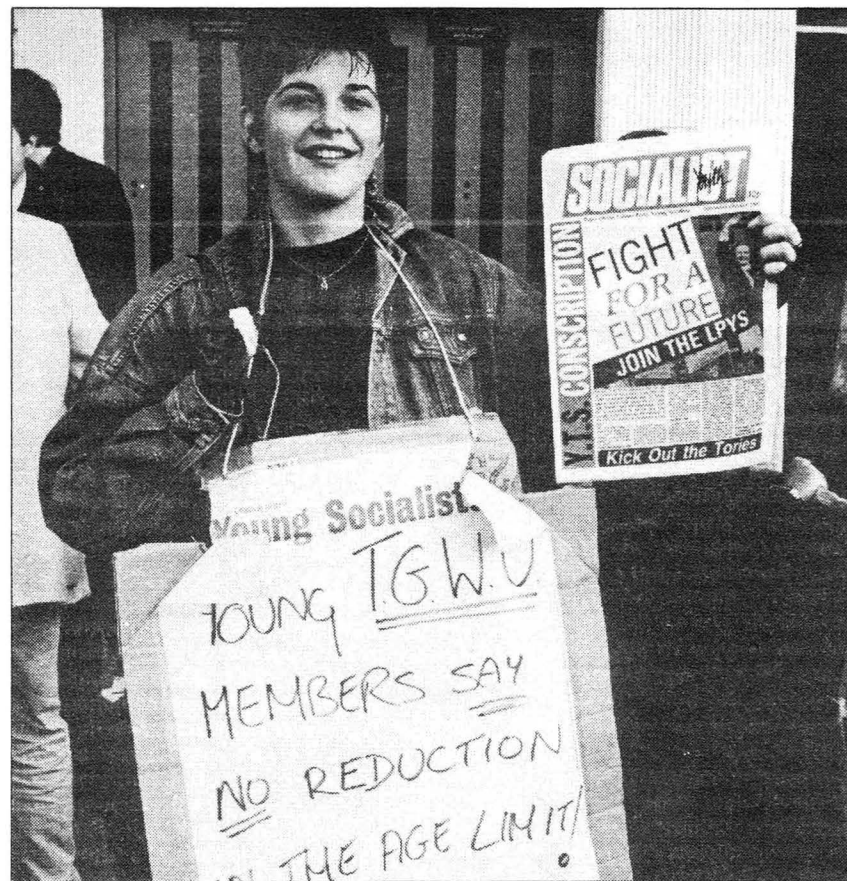 SOCIALIST
Youth
Y.T.S. CONSCRIPTION
FIGHT
FOR A
FUTURE
JOIN THE LPYS
Kick Out the Tories
Young Socialist
YOUNG T.G.W.U.
MEMBERS SAY
NO REDUCTION
IN THE AGE LIMIT!